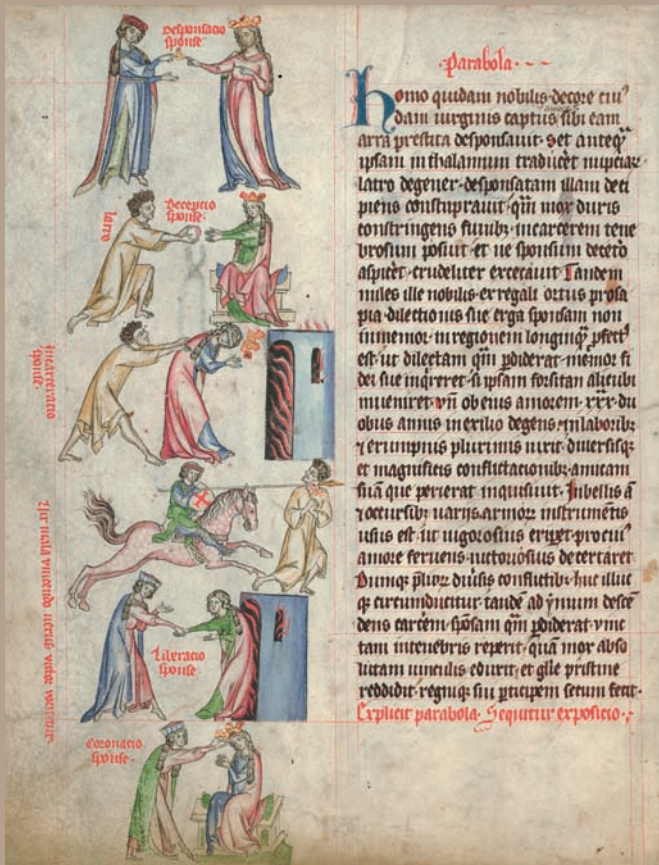 Desponsacio
sponse
Decepcio
sponse
latro
Incarceratio
sponse
Liberacio
sponse
Coronacio
sponse
Parabola
homo quidam nobilis decore cui'
dam virginis captus sibi eam
arra prestita desponsauit. Set anteq̄
ipsam in thalamum traduc̄et nupciar
latro degener desponsatam illam deci
piens constuprauit q̄m mox duris
constringens funibꝫ incarcerem tene
brosum posuit et ne sponsum decet̄o
aspic̄et crudeliter excecauit Tandem
miles ille nobilis ex regali ortus prosa
pia dilectionis sue erga sponsam non
inmemor in regionem longinq̄ pfect'
est ut dilectam q̄m pdiderat memor fi
dei sue inq̄reret si ipsam forsitan alicubi
inueniret vn̄ ob eius amorem xxx du
obus annis in exilio degens in laboribꝫ
et erumpnis plurimis uixit diuersisqꝫ
et magnificis conflictacionibꝫ amicam
suā que perierat inquisiuit. In bellis
et occursibꝫ varijs armoꝝ instrumētis
usus est ut uigorosius pro cui'
amore feruens uictoriosius decertaret
Dumqꝫ plioꝝ diūsis conflictibꝫ huc illuc
qꝫ circumducitur tandē ad ymum descē
dens carcēm spōsam q̄m pdiderat vinc
tam in tenebris reperit quā mox abso
lutam uinculis eduxit et gl̄ie pristine
reddidit regniqꝫ sui pticipem secum fecit
Explicit parabola. Sequitur exposicio